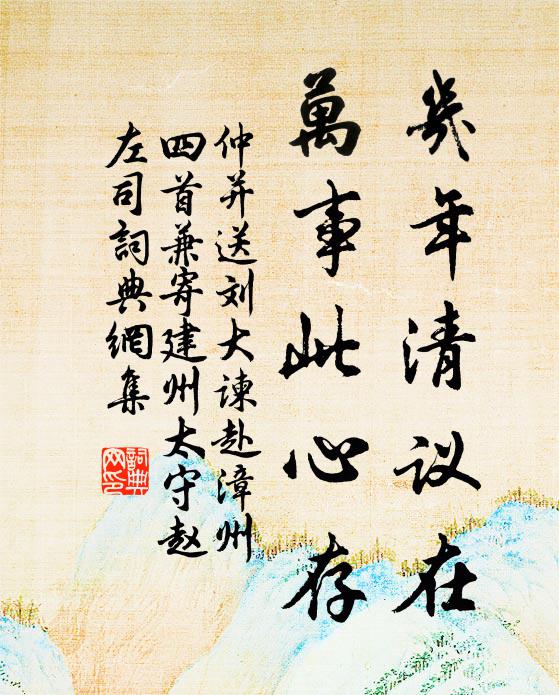 幾年清议在
萬事此心存
仲并送刘大諫赴漳州
四首兼寄建州太守赵
左司詞典網集
詞典
网印